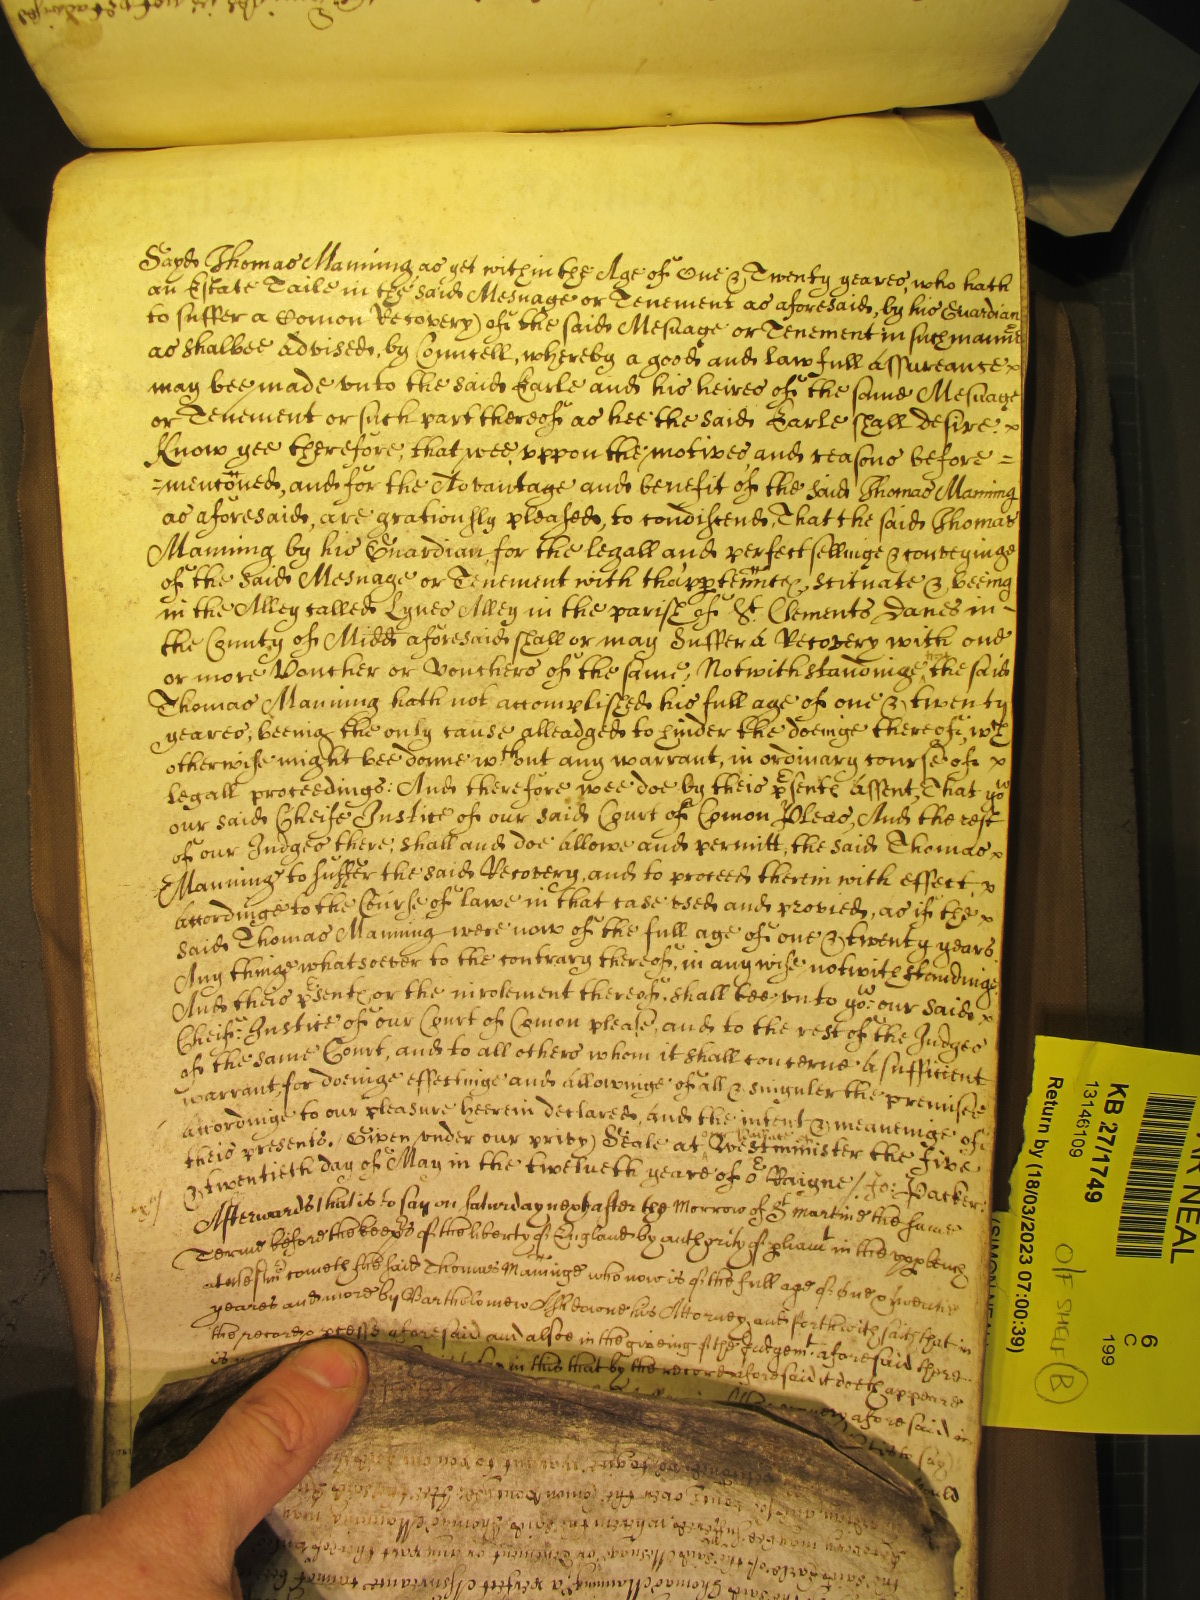 Sayd Thomas Manning as yet within the Age of One & Twenty yeares, who hath
an Estate Taile in the said Mesuage or Tenement as aforesaid, by his Guardian
to suffer a Comon Recovery of the said Mesuage or Tenement in such manner
as shalbee advised, by Councell, whereby a good and lawfull assureance
may bee made unto the said Earle and his heires of the same Mesuage
or Tenement or such part thereof as hee the said Earle shall desire.
Know yee therefore, that wee, uppon the motives and reasons before =
=mentoned, and for the Advantage and benefit of the said Thomas Manning
as aforesaid, are graciously pleased, to condiscend, That the said Thomas
Manning by his Guardian, for the legall and perfect sellinge & conveyinge
of the said Mesuage or Tenement with thapptennces, scituate & beeing
in the Alley called Lynes Alley in the parish of St. Clements Danes in -
the County of Midd aforesaid shall or may Suffer a Recovery with one
or more Voucher or Vouchers of the same, Notwithstandinge that the said
Thomas Manning hath not accomplished his full age of one & twenty
yeares, beeing the only cause alleadged to hinder the doeinge thereof, wch
otherwise might bee donne wthout any warrant, in ordinary course of
legall proceedings: And therefore wee doe by theis psents Assent, That yow
our said Cheife Justice of our said Court of Comon Pleas, And the rest
of our Judges there, shall and doe allowe and permitt, the said Thomas
Manning to suffer the said Recovery, and to proceed therein with effect,
accordinge to the Course of lawe in that case used and provied, as if the
said Thomas Manning were now of the full age of one & twenty years.
Any thinge whatsoever to the contrary thereof, in any wise notwithstandinge.
And theis psents, or the inrolement thereof, shall bee unto yow our said
Cheife Justice of our Court of Comon pleas, and to the rest of the Judges
of the same Court, and to all others whom it shall concerne a sufficient
warrant, for doeinge effectinge and allowinge of all & singuler the premises
accordinge to our pleasure heerein declared, and the intent & meaneinge of
theis presents. Given under our privy Seale at Westminister the five
& twentieth day of May in the twelveth yeare of o Raigne / Jo: Packer:
Afterwards that is to say on Saturday next after the Morrow of St martine the same
Terme before the keeps of the liberty of England by authority of pliamt in the upp bench
at cometh the said Thomas Maninge who now is of the full age of one & twentie
yeares and more by Bartholomew his Attorney, and forthwith saith that in
the record & pcesse aforesaid and alsoe in the giveing of the Judgemt aforesaid there
in this that by the record aforesaid it doeth appeare
aforesaid in
to say
should
KB 27/1749
13146109
Return by (18/03/2023 07:00:39)
6
C
199
O/F SHELF B